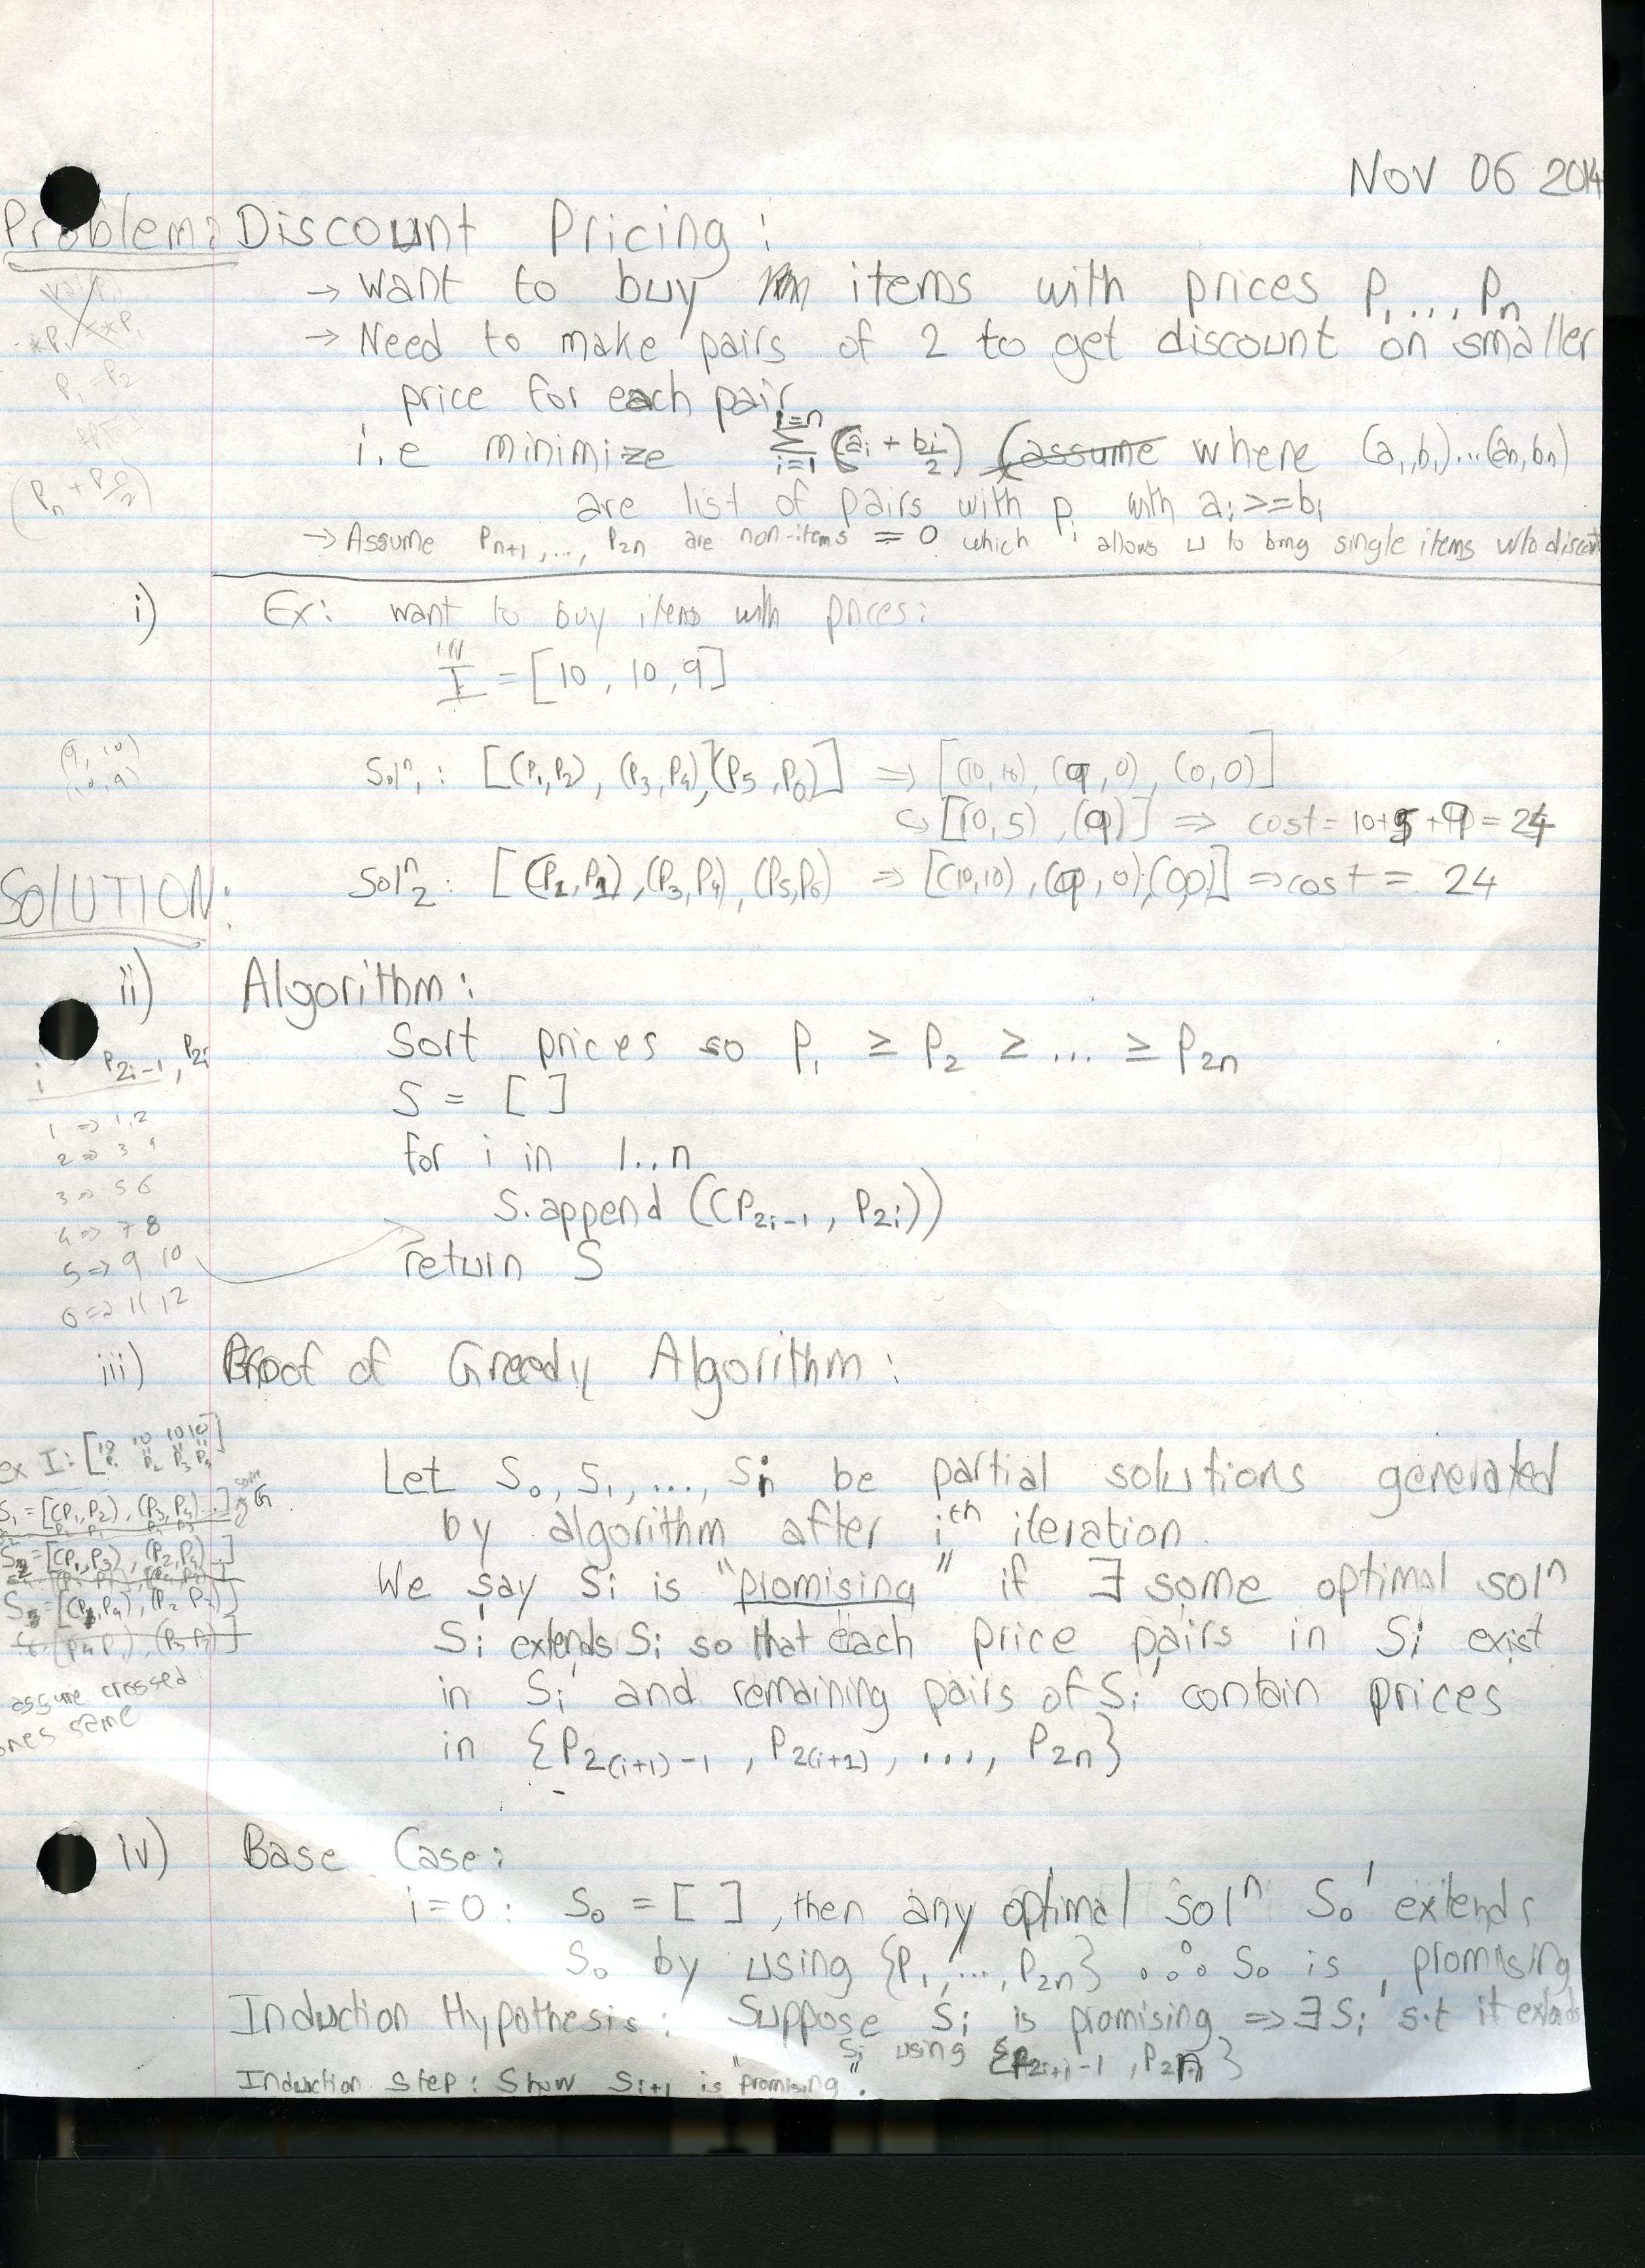 Nov 06 2014
Problem: Discount Pricing:
→ want to buy items with prices P1, ..., Pn
→ Need to make pairs of 2 to get discount on smaller
price for each pair
i.e minimize Σ i=1 i=n (ai + bi/2) (assume where (a1,b1)...(an,bn)
are list of pairs with pi with ai >= bi
→ Assume Pn+1, ..., P2n are non-items = 0 which allows u to bring single items w/o discount
P1 = P2
(Pn + P0/2)
i) Ex: want to buy items with prices:
I = [10, 10, 9]
(9, 10)
(10, 9)
Solⁿ1: [(P1,P2), (P3,P4),(P5,P6)] ⇒ [(10,10), (9,0), (0,0)]
↪ [(10,5), (9)] ⇒ cost = 10+5+9 = 24
SOLUTION:
Solⁿ2: [(P2,P1), (P3,P4), (P5,P6) ⇒ [(10,10), (9,0),(0,0)] ⇒ cost = 24
ii) Algorithm:
Sort prices so P1 ≥ P2 ≥ ... ≥ P2n
S = [ ]
for i in 1..n
S.append ((P2i-1, P2i))
return S
i P2i-1, P2i
1 ⇒ 1,2
2 ⇒ 3 4
3 ⇒ 5 6
4 ⇒ 7 8
5 ⇒ 9 10
6 ⇒ 11 12
iii) Proof of Greedy Algorithm:
Let S0, S1, ..., Sn be partial solutions generated
by algorithm after iᵗʰ iteration.
We say Si is "promising" if ∃ some optimal solⁿ
Si' extends Si so that each price pairs in Si exist
in Si' and remaining pairs of Si' contain prices
in {P2(i+1)-1, P2(i+1), ..., P2n}
ex I: [10 10 10 10]
P1 P2 P3 P4
S1 = [(P1,P2), (P3,P4)...]
S2 = [(P1,P3), (P2,P4)...]
S3 = [(P1,P4), (P2 P3)]
assume crossed
ones same
iv) Base Case:
i=0: S0 = [ ], then any optimal solⁿ S0' extends
S0 by using {P1, ..., P2n} ∴ S0 is promising
Induction Hypothesis: Suppose Si is promising ⇒ ∃ Si' s.t it extends
Si using {P2i+1-1, P2n}
Induction Step: Show Si+1 is "promising".